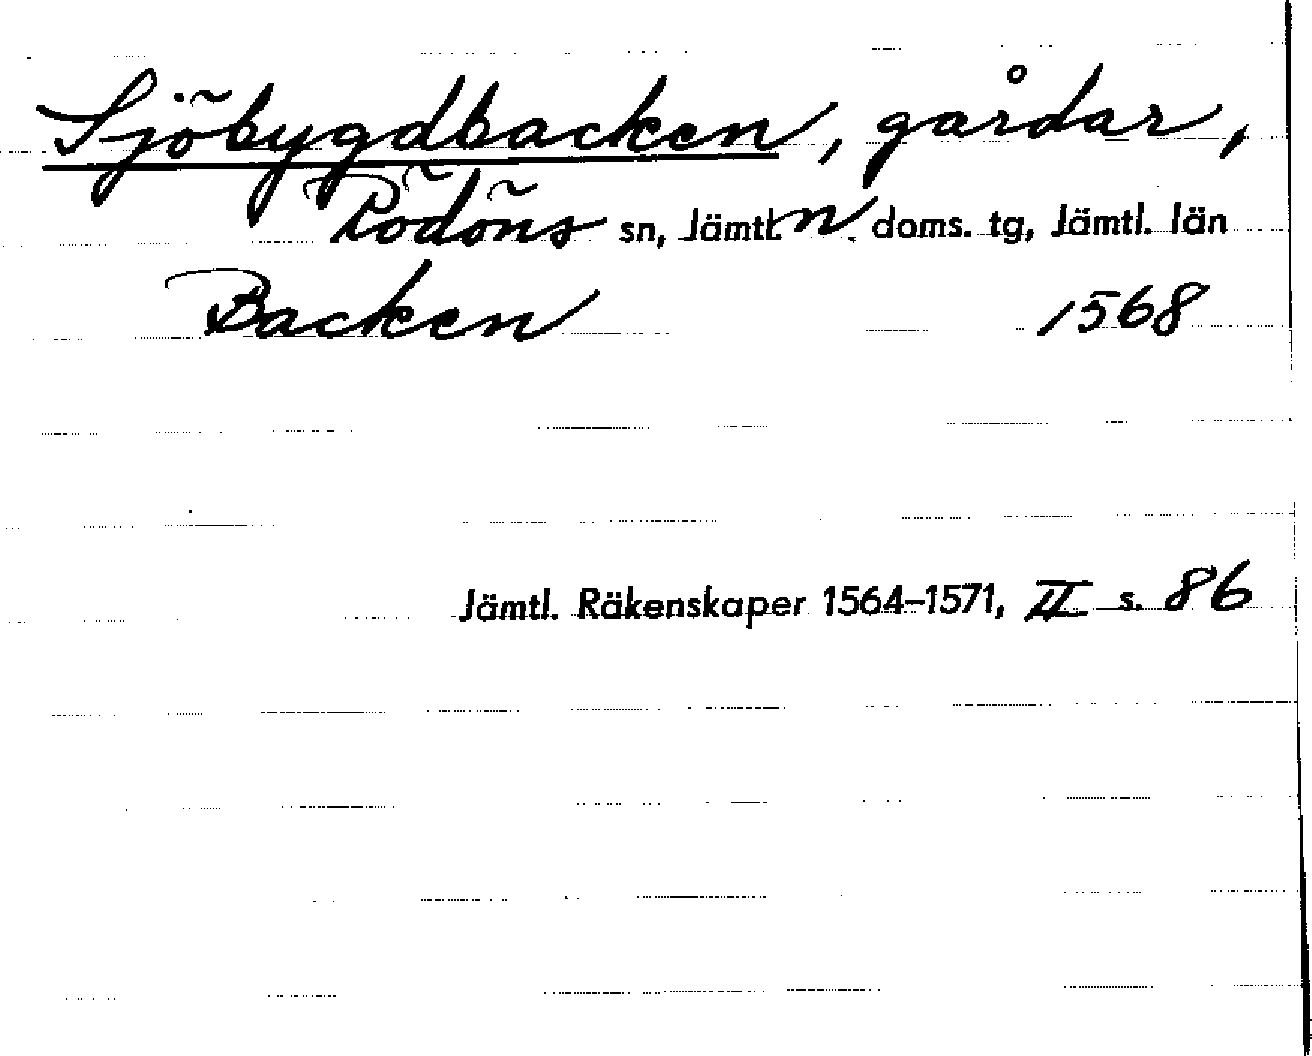 Sjöbygdbacken, gårdar,
Rödöns sn, Jämtl. n. doms. tg, Jämtl. län
Backen 1568
Jämtl. Räkenskaper 1564-1571, II s. 86